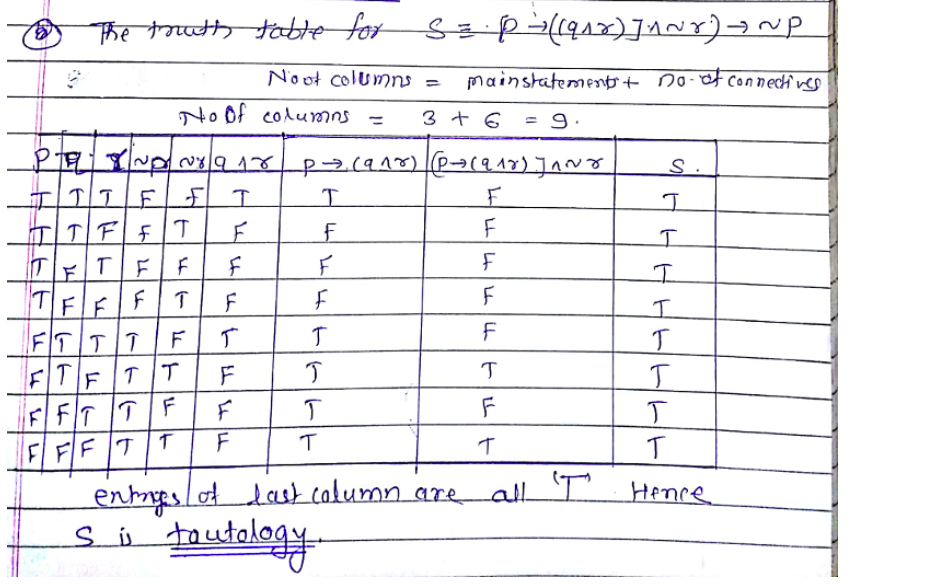 ⑧ The truth table for S ≡ p → ((q∧r)]∧~r) → ~p
No of columns = mainstatements + no. of connectives
No Of columns = 3 + 6 = 9.
P q r ~p ~r q∧r p→(q∧r) [p→(q∧r)]∧~r S.
T T T F F T T F T
T T F F T F F F T
T F T F F F F F T
T F F F T F F F T
F T T T F T T F T
F T F T T F T T T
F F T T F F T F T
F F F T T F T T T
entries of last column are all 'T' Hence
S is tautology.